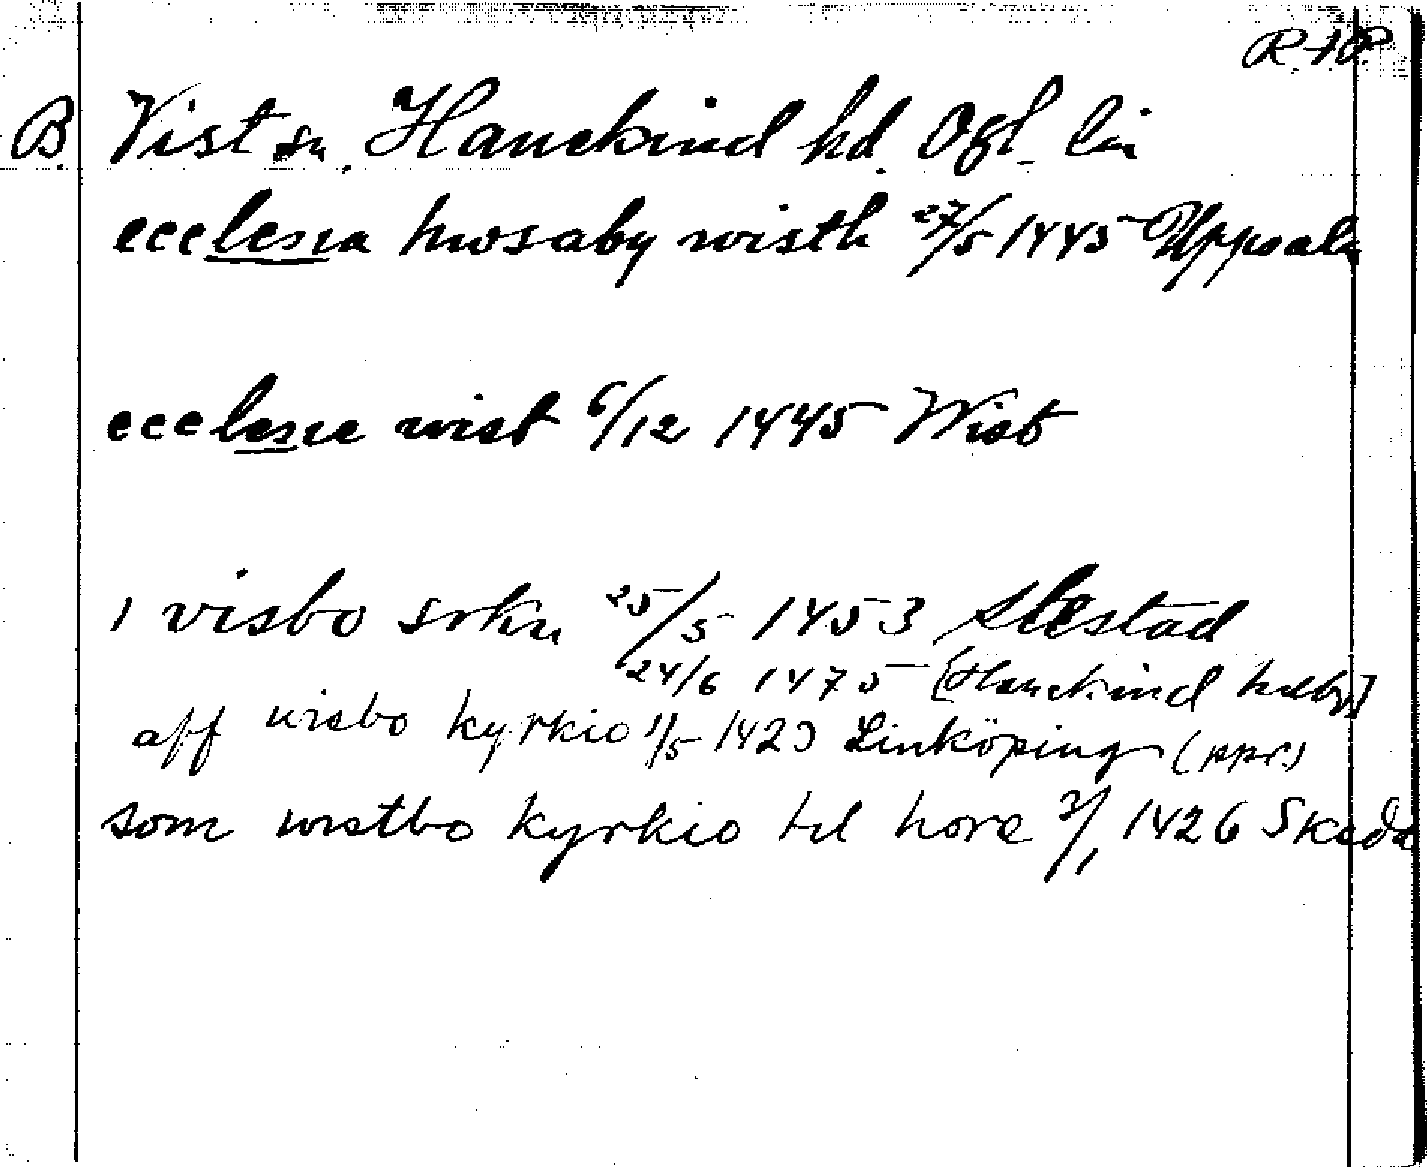 R. 10.
B. Vist sn. Hanekind hd. Ögl. län
ecclesia hwsaby wisth 27/5 1445 Uppsala
ecclesie wist 6/12 1445 Wist
i visbo sokn 25/5 1453 Slestad
24/6 1475 [Hanekind hdbr]
aff wisbo kyrkio 1/5 1423 Linköping (ppr)
som wistbo kyrkio til hore 3/1 1426 Skeda